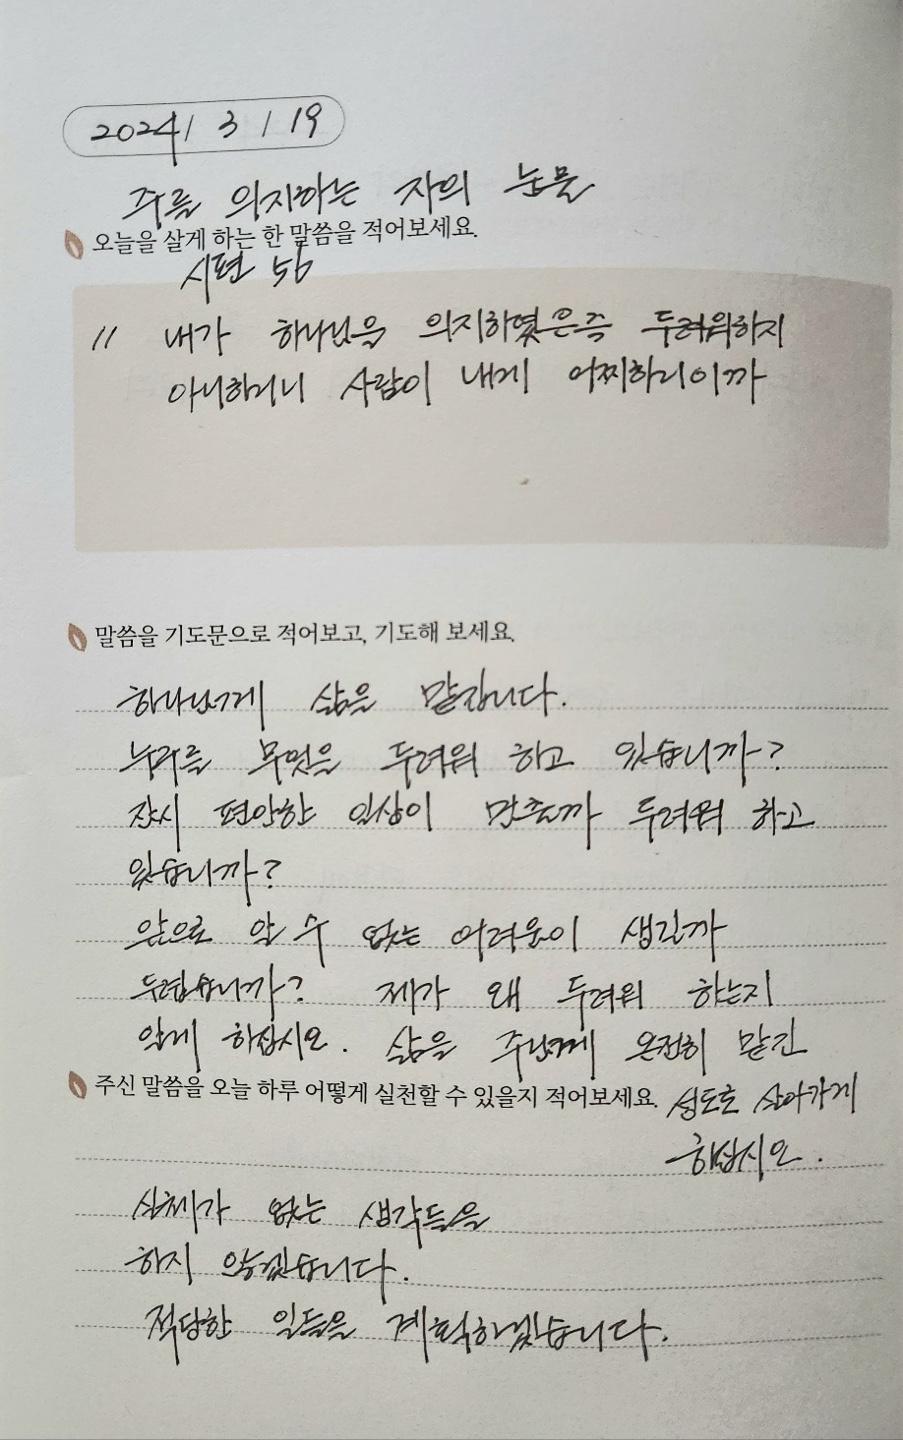 2024 / 3 / 19
주를 의지하는 자의 눈물
오늘을 살게 하는 한 말씀을 적어보세요.
시편 56
11 내가 하나님을 의지하였은즉 두려워하지
아니하리니 사람이 내게 어찌하리이까
말씀을 기도문으로 적어보고, 기도해 보세요.
하나님께 삶을 맡깁니다.
누구를 무엇을 두려워 하고 있습니까?
잠시 편안한 일상이 멈출까 두려워 하고
있습니까?
앞으로 알 수 없는 어려움이 생길까
두렵습니까? 제가 왜 두려워 하는지
알게 하십시오. 삶을 주님께 온전히 맡긴
주신 말씀을 오늘 하루 어떻게 실천할 수 있을지 적어보세요.
성도로 살아가게
하십시오.
실체가 없는 생각들을
하지 않겠습니다.
적당한 일들을 계획하겠습니다.